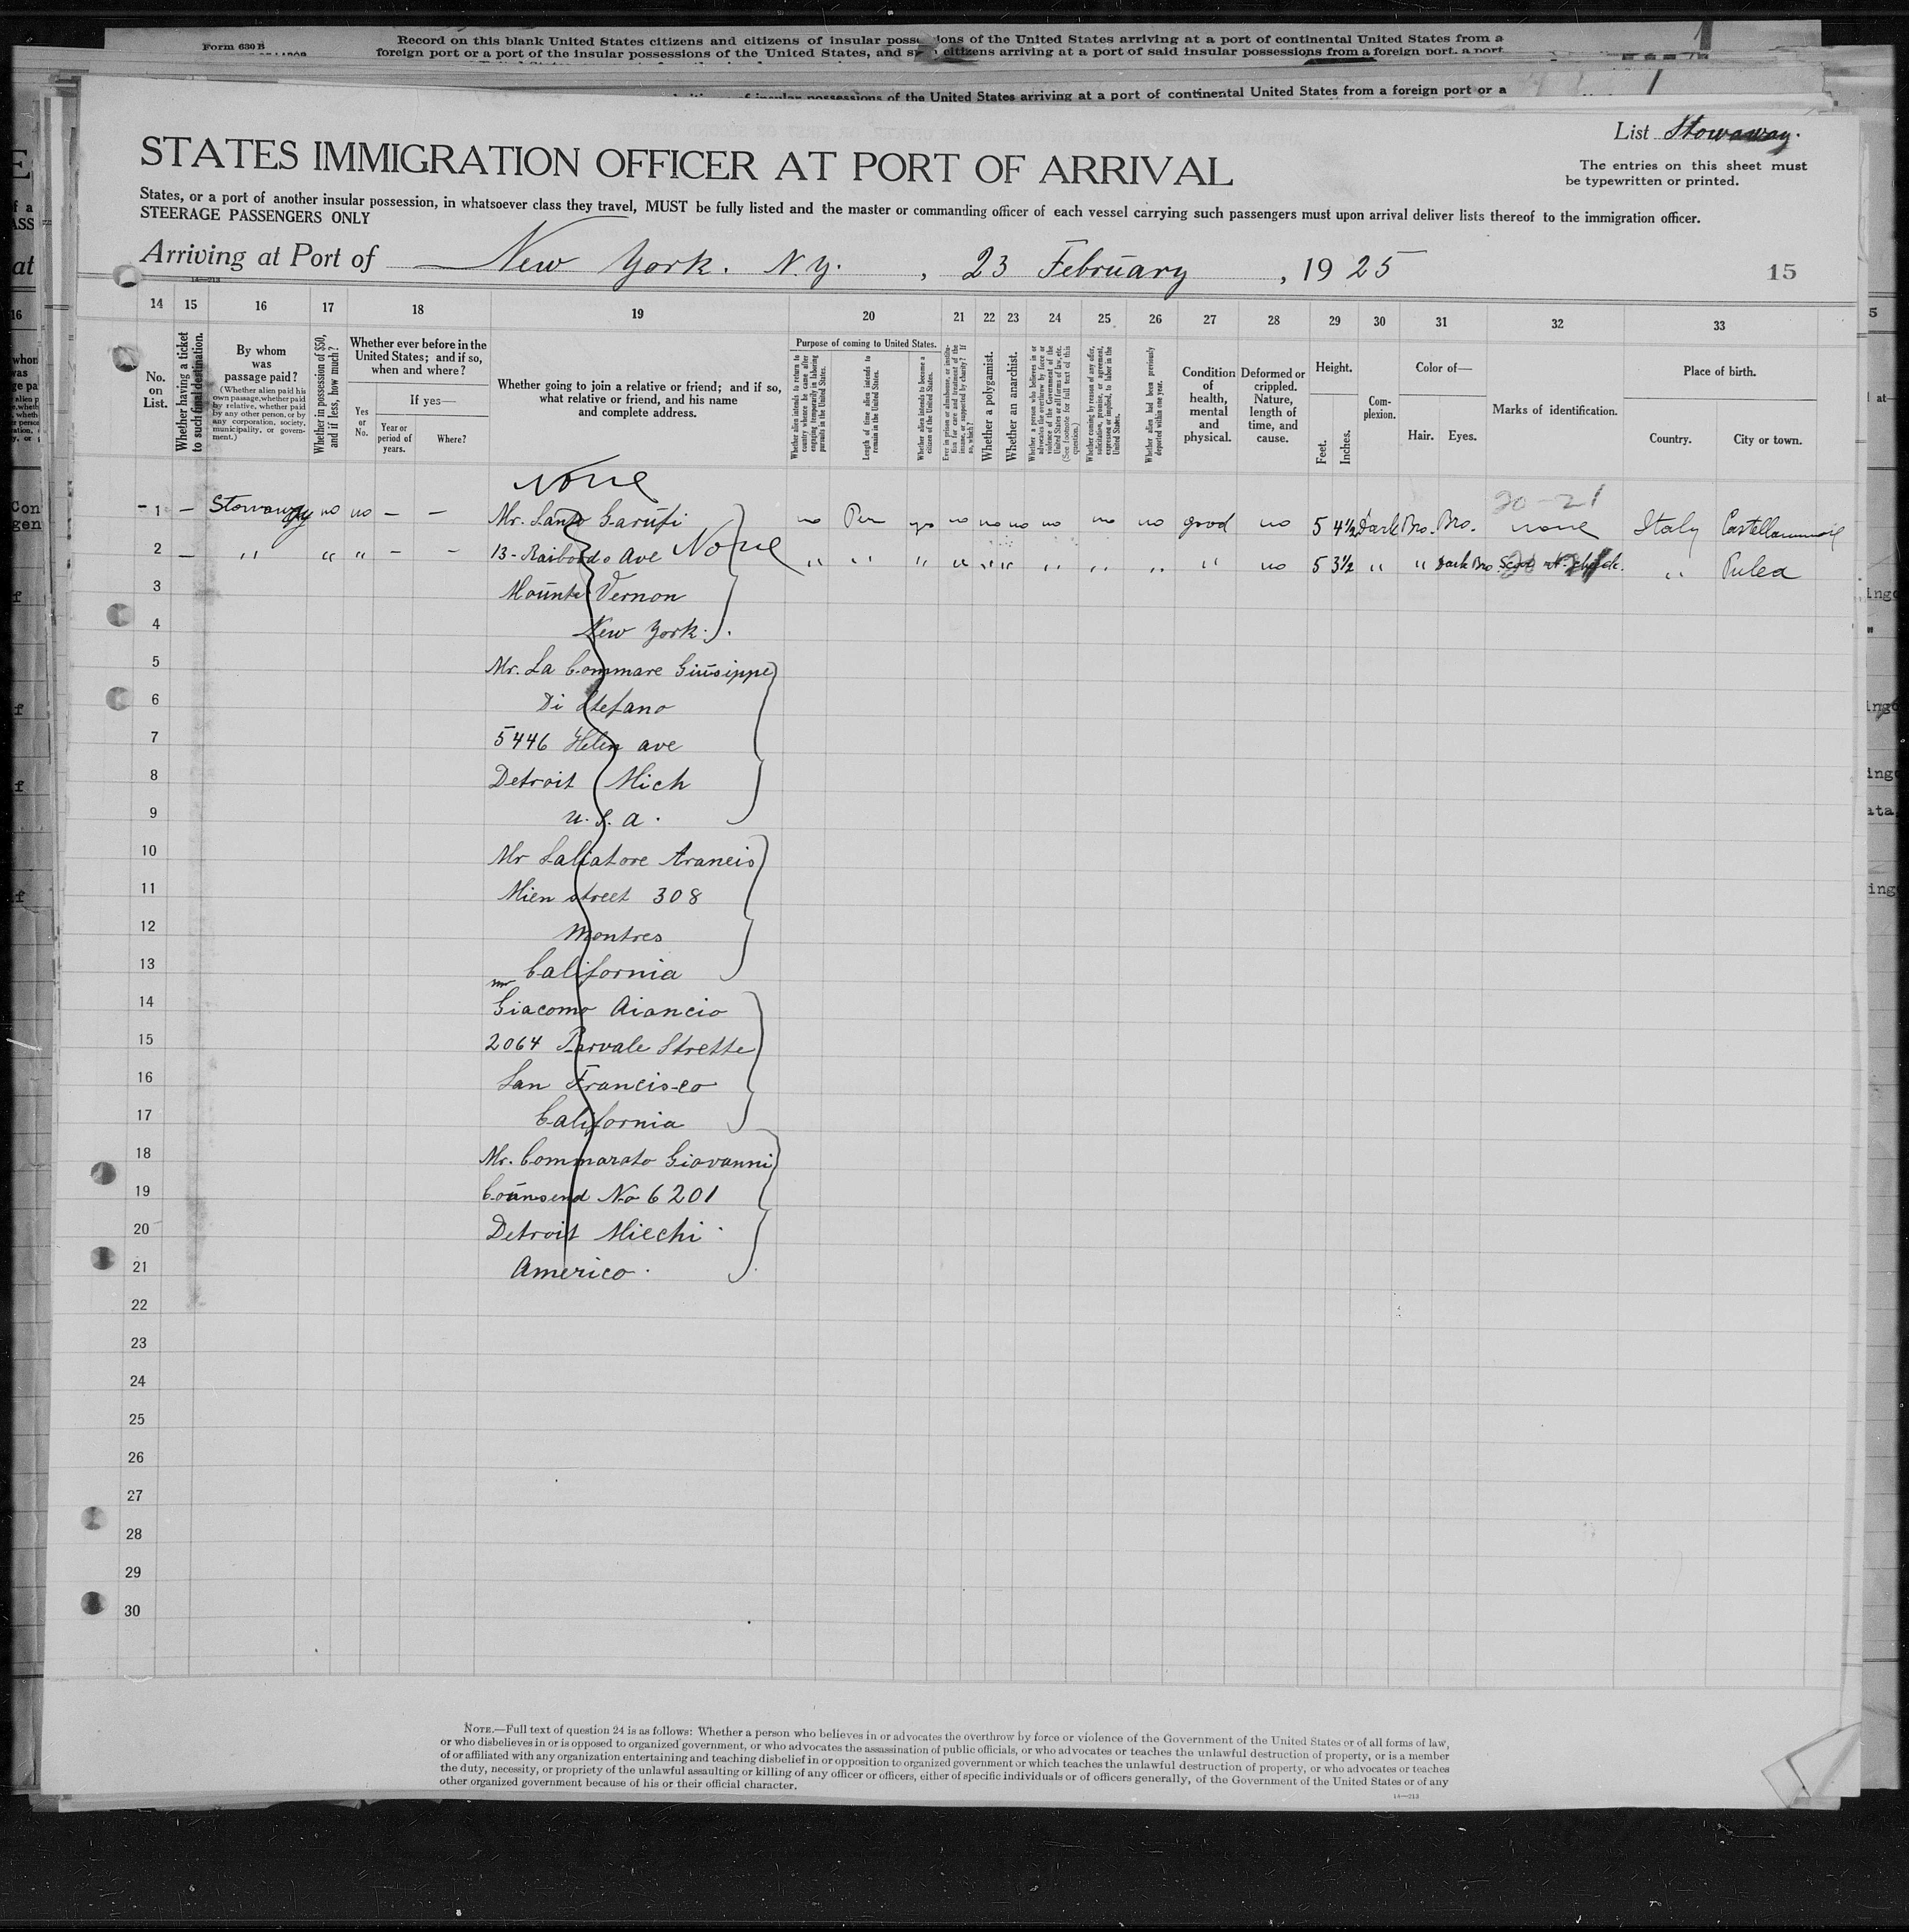 Form 630 B
Record on this blank United States citizens and citizens of insular possessions of the United States arriving at a port of continental United States from a
foreign port or a port of the insular possessions of the United States, and citizens arriving at a port of said insular possessions from a foreign port, a port
insular possessions of the United States arriving at a port of continental United States from a foreign port or a
List Stowaway.
STATES IMMIGRATION OFFICER AT PORT OF ARRIVAL
The entries on this sheet must
be typewritten or printed.
States, or a port of another insular possession, in whatsoever class they travel, MUST be fully listed and the master or commanding officer of each vessel carrying such passengers must upon arrival deliver lists thereof to the immigration officer.
STEERAGE PASSENGERS ONLY
Arriving at Port of New York. N.Y. , 23 February , 1925
15
14—213
14 15 16 17 18 19 20 21 22 23 24 25 26 27 28 29 30 31 32 33
No. on List.
Whether having a ticket to such final destination.
By whom was passage paid?
(Whether alien paid his own passage, whether paid by relative, whether paid by any other person, or by any corporation, society, municipality, or government.)
Whether in possession of $50, and if less, how much?
Whether ever before in the United States; and if so, when and where?
Yes or No.
If yes—
Year or period of years.
Where?
Whether going to join a relative or friend; and if so, what relative or friend, and his name and complete address.
Purpose of coming to United States.
Whether alien intends to return to country whence he came after engaging temporarily in laboring pursuits in the United States.
Length of time alien intends to remain in the United States.
Whether alien intends to become a citizen of the United States.
Ever in prison or almshouse, or institution for care and treatment of the insane, or supported by charity? If so, which?
Whether a polygamist.
Whether an anarchist.
Whether a person who believes in or advocates the overthrow by force or violence of the Government of the United States or all forms of law, etc. (See footnote for full text of this question.)
Whether coming by reason of any offer, solicitation, promise, or agreement, expressed or implied, to labor in the United States.
Whether alien had been previously deported within one year.
Condition of health, mental and physical.
Deformed or crippled. Nature, length of time, and cause.
Height.
Feet.
Inches.
Complexion.
Color of—
Hair.
Eyes.
Marks of identification.
Place of birth.
Country.
City or town.
none
20-21
1 — Stowaway no no — — Mr. Santo Garufi no Per yes no no no no no no good no 5 4½ Dark Bro. Bro. none Italy
2 — " " " — — 13 - Raibordo Ave None " " " " " " " " " " no 5 3½ " " Dark Bro. "
3 Mounte Vernon
4 New York.
5 Mr. La Commare Giuseppe
6 Di Stefano
7 5446 Helen ave
8 Detroit Mich
9 U.S.a.
10 Mr Salvatore Araneis
11 Mien street 308
12 Montres
13 California
mr
14 Giacomo Aiancio
15 2064 Parvale Strette
16 San Francisco
17 California
18 Mr. Commarato Giovanni
19 Counsend No 6201
20 Detroit Miechi
21 Americo.
22
23
24
25
26
27
28
29
30
NOTE.—Full text of question 24 is as follows: Whether a person who believes in or advocates the overthrow by force or violence of the Government of the United States or of all forms of law,
or who disbelieves in or is opposed to organized government, or who advocates the assassination of public officials, or who advocates or teaches the unlawful destruction of property, or is a member
of or affiliated with any organization entertaining and teaching disbelief in or opposition to organized government or which teaches the unlawful destruction of property, or who advocates or teaches
the duty, necessity, or propriety of the unlawful assaulting or killing of any officer or officers, either of specific individuals or of officers generally, of the Government of the United States or of any
other organized government because of his or their official character.
14—213